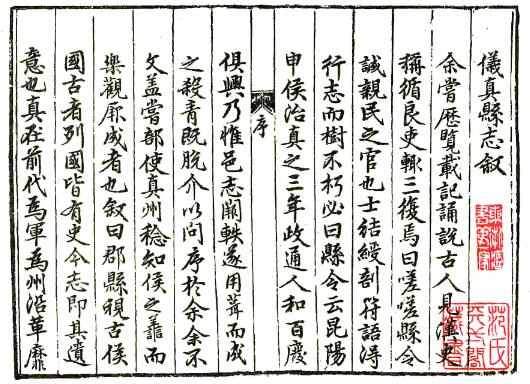 儀真縣志叙
余嘗歷覽載記誦說古人見漢史
稱循良吏輒三復焉曰嗟嗟縣令
誠親民之官也士結綬剖符語得
行志而樹不朽必曰縣令云昆陽
申侯治真之三年政通人和百廢
序
俱興乃惟邑志闕軼遂用葺而成
之殺青既脫介以問序於余余不
文盖嘗部使真州稔知侯之蘄而
樂觀厥成者也叙曰郡縣視古侯
國古者列國皆有史今志即其遺
意也真在前代為軍為州沿革靡
范氏天一閣藏書